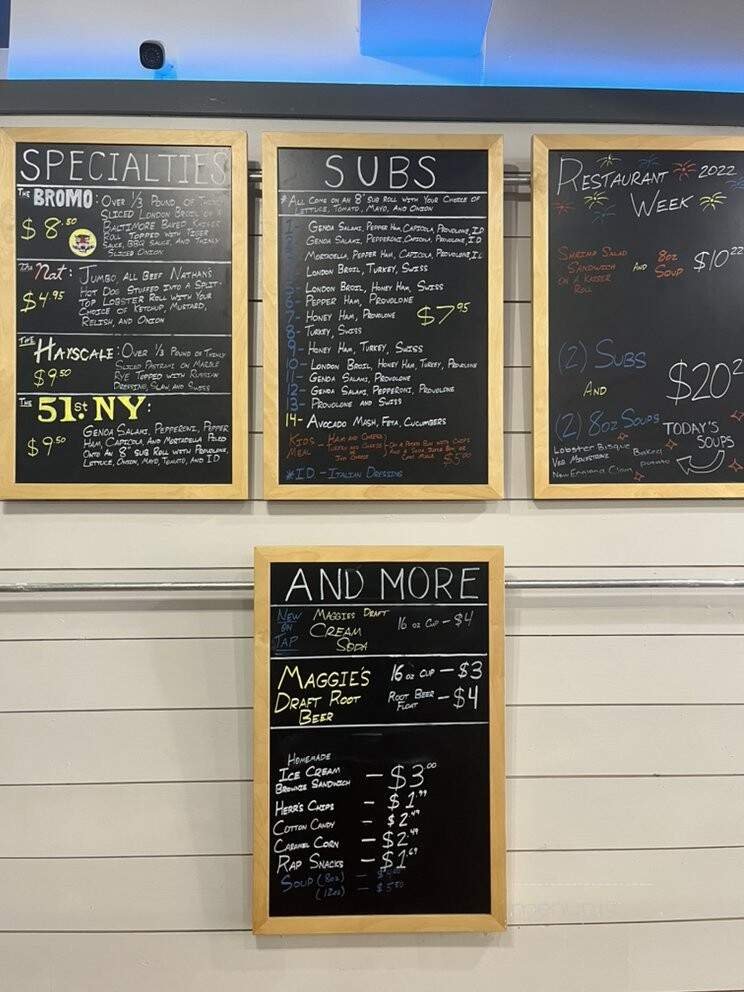 SPECIALTIES
THE BROMO: OVER 1/3 POUND OF THINLY
SLICED LONDON BROIL ON A
$8.50 BALTIMORE BAKED KAISER
ROLL TOPPED WITH TIGER
SAUCE, BBQ SAUCE, AND THINLY
SLICED ONION
THE Nat: JUMBO, ALL BEEF NATHAN'S
HOT DOG STUFFED INTO A SPLIT-
$4.95 TOP LOBSTER ROLL WITH YOUR
CHOICE OF KETCHUP, MUSTARD,
RELISH, AND ONION
THE HAYSCALE: OVER 1/3 POUND OF THINLY
SLICED PASTRAMI ON MARBLE
$9.50 RYE TOPPED WITH RUSSIAN
DRESSING, SLAW, AND SWISS
THE 51st NY:
GENOA SALAMI, PEPPERONI, PEPPER
$9.50 HAM, CAPICOLA, AND MORTADELLA PILED
ONTO AN 8" SUB ROLL WITH PROVOLONE,
LETTUCE, ONION, MAYO, TOMATO, AND ID
SUBS
*ALL COME ON AN 8" SUB ROLL WITH YOUR CHOICE OF
LETTUCE, TOMATO, MAYO, AND ONION
1- GENOA SALAMI, PEPPER HAM, CAPICOLA, PROVOLONE, ID
2- GENOA SALAMI, PEPPERONI, CAPICOLA, PROVOLONE, ID
3- MORTADELLA, PEPPER HAM, CAPICOLA, PROVOLONE, ID
4- LONDON BROIL, TURKEY, SWISS
5- LONDON BROIL, HONEY HAM, SWISS
6- PEPPER HAM, PROVOLONE
7- HONEY HAM, PROVOLONE $7.95
8- TURKEY, SWISS
9- HONEY HAM, TURKEY, SWISS
10- LONDON BROIL, HONEY HAM, TURKEY, PROVOLONE
11- GENOA SALAMI, PROVOLONE
12- GENOA SALAMI, PEPPERONI, PROVOLONE
13- PROVOLONE AND SWISS
14- AVOCADO MASH, FETA, CUCUMBERS
KIDS - HAM AND CHEESE
MEAL TURKEY AND CHEESE ON A POTATO BUN WITH CHIPS
$5.00
*ID - ITALIAN DRESSING
RESTAURANT 2022
WEEK
SHRIMP SALAD
SANDWICH AND 8oz SOUP $10.22
ON A KAISER
ROLL
(2) SUBS
AND $20.2
(2) 8oz SOUPS
TODAY'S
SOUPS
Lobster Bisque
Veg Minestrone Baked potato
New England Clam
AND MORE
NEW ON TAP MAGGIES DRAFT
CREAM 16 oz CUP - $4
SODA
MAGGIE'S 16 oz CUP - $3
DRAFT ROOT ROOT BEER FLOAT - $4
BEER
HOMEMADE
ICE CREAM
BROWNIE SANDWICH - $3.00
HERR'S CHIPS - $1.99
COTTON CANDY - $2.49
CARAMEL CORN - $2.49
RAP SNACKS - $1.69
SOUP (8oz) -
(12oz) - $5.50